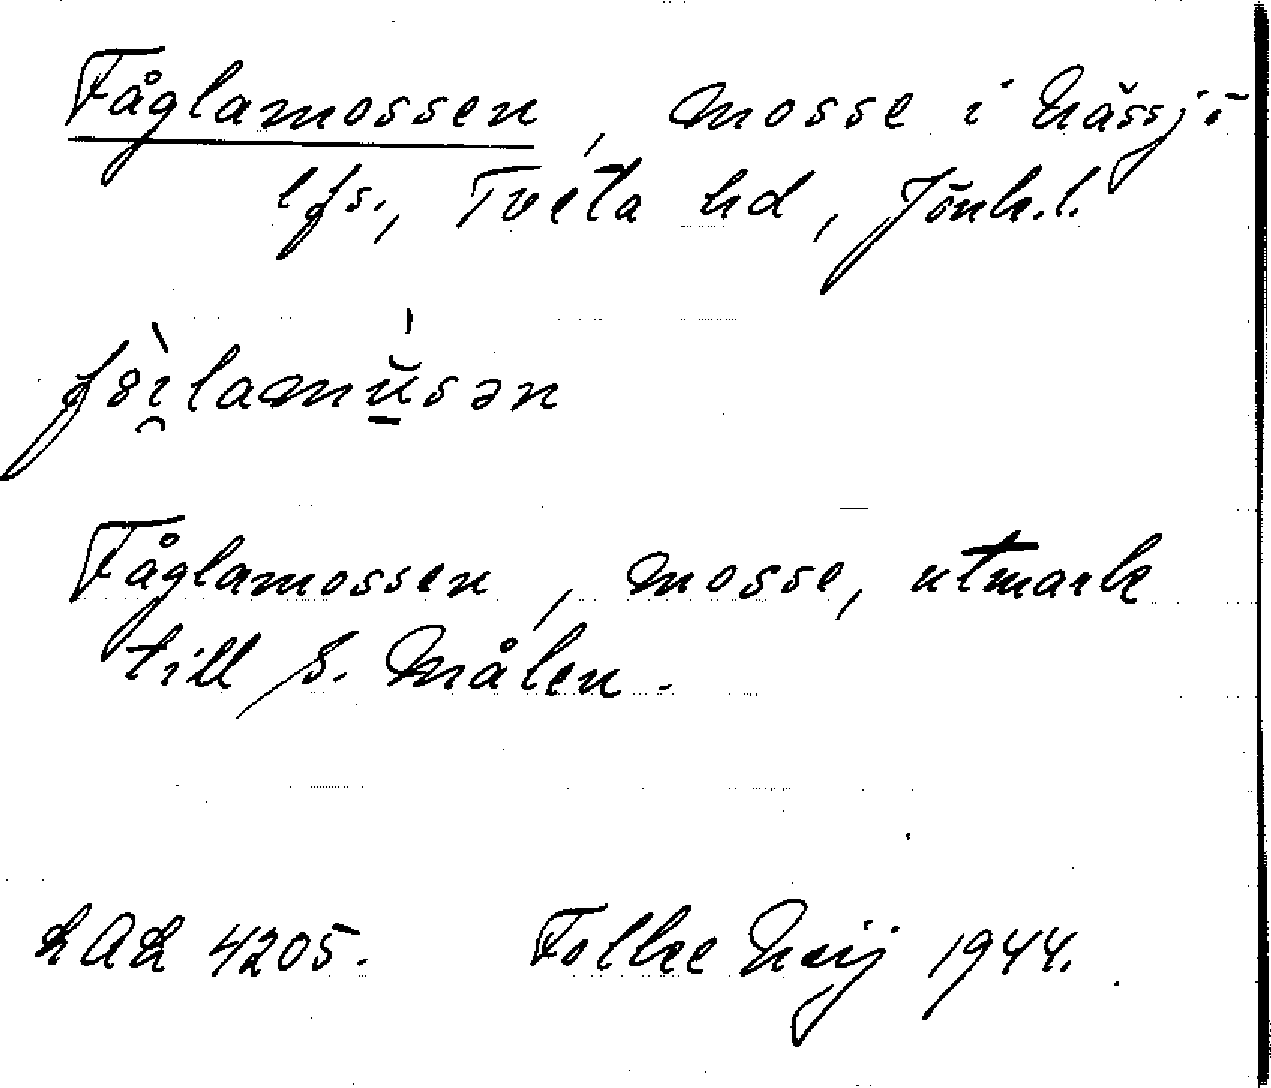 Fåglamossen, mosse i Nässjö
lfs., Tveta hd, Jönk.l.
Fåglamossen, mosse, utmark
till S. Målen.
LAL 4205. Folke Neij 1944.